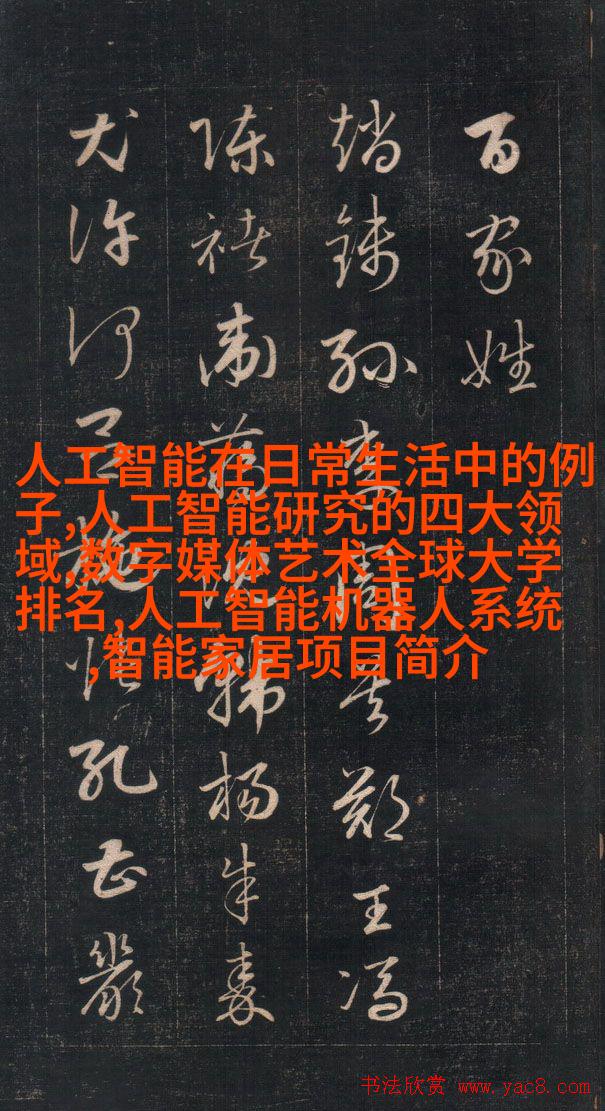 百家姓
趙錢孫李周吳鄭王馮
陳褚衛蔣沈韓楊朱秦
尤許何呂施張孔曹嚴
人工智能在日常生活中的例
子,人工智能研究的四大领
域,数字媒体艺术全球大学
排名,人工智能机器人系统
,智能家居项目简介
书法欣赏 www.yac8.com